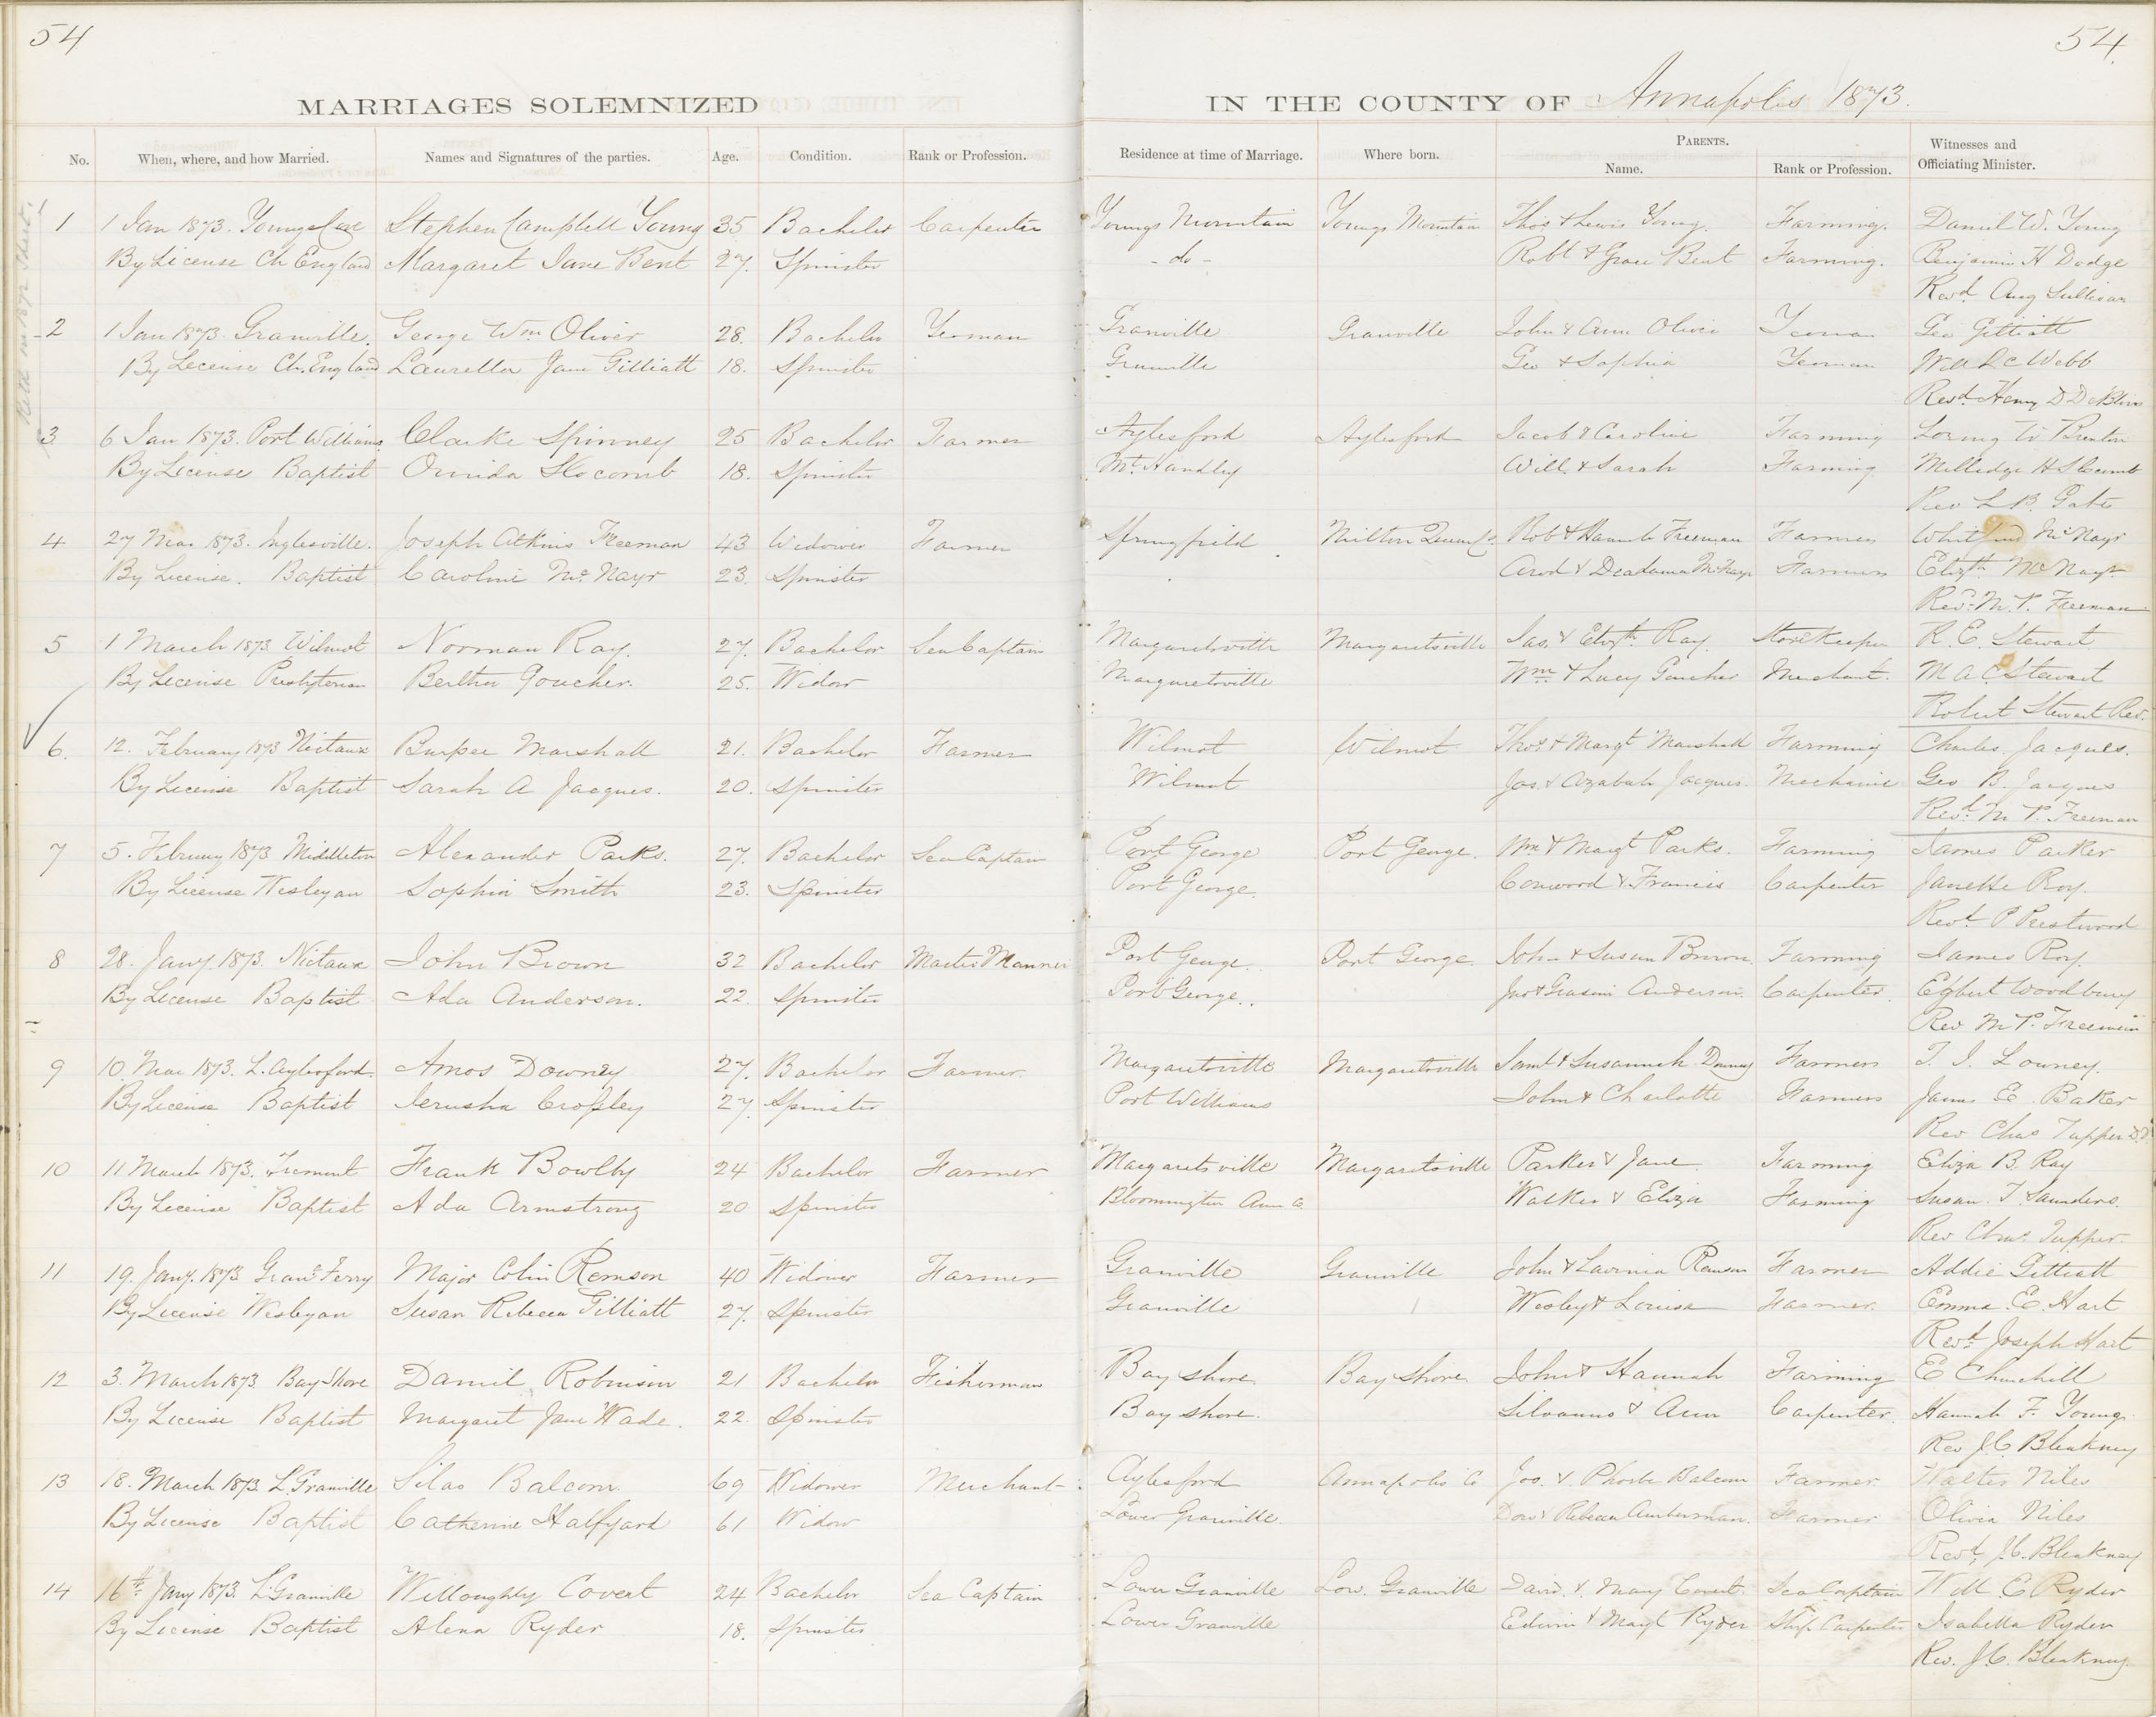 54
54.
MARRIAGES SOLEMNIZED
IN THE COUNTY OF Annapolis 1873.
No. When, where, and how Married. Names and Signatures of the parties. Age. Condition. Rank or Profession. Residence at time of Marriage. Where born. PARENTS. Name. Rank or Profession. Witnesses and Officiating Minister.
1 1 Jan 1873. Youngs Cove Stephen Campbell Young 35 Bachelor Carpenter Youngs Mountain Youngs Mountain Thos & Lewis Young. Farming. Daniel W. Young
By License Ch England Margaret Jane Bent 27. Spinster - do - Robt & Grace Bent Farming. Benjamin H Dodge
Revd. Aug Sullivan
2 1 Jan 1873. Granville. George Wm Oliver 28. Bachelor Yeoman Granville Granville John & Ann Oliver Yeoman Geo Gilliatt
By License Ch. England Lauretta Jane Gilliatt 18. Spinster Granville Geo & Sophia Yeoman Will L C Webb
Revd. Henry D DeBlois
3 6 Jan 1873. Port Williams Clarke Spinney 25 Bachelor Farmer Aylesford Aylesford Jacob & Caroline Farming Loring W Brenton
By License Baptist Ounida Slocomb 18. Spinster Mt. Handley Will. & Sarah Farming Milledge H Slocomb
Rev L. B. Gates
4 27 Mar 1873. Inglesville. Joseph Atkins Freeman 43 Widower Farmer Springfield Milton Queens Co. Rob & Hannah Freeman Farmer McNayr
By License. Baptist Caroline McNayr 23. Spinster & Deadama McNayr Farmer Elizth McNayr
Revd. M. P. Freeman
5 1 March 1873 Wilmot Norman Ray. 27. Bachelor Sea Captain Margaretsville Margaretsville Jas. & Elizth. Ray. Storekeeper R. E. Stewart
By License Presbyterian Bertha Goucher. 25. Widow Margaretsville Wm. & Lucy Goucher Merchant. M A C Stewart
Robert Stewart Rev.
6. 12. February 1873 Nictaux Burpee Marshall 21. Bachelor Farmer Wilmot Wilmot Thos. & Margt Marshall Farming Charles Jacques.
By License Baptist Sarah A Jacques. 20. Spinster Wilmot Jos. & Azabah Jacques. Mechanic Geo B. Jacques
Revd. M. P. Freeman
7 5. February 1873 Middleton Alexander Parks. 27. Bachelor Sea Captain Port George Port George. Wm & Margt Parks. Farming James Parker
By License Wesleyan Sophia Smith 23. Spinster Port George. Conwood & Francis Carpenter Janette Roy.
Revd. P Prestwood
8 28. Jany. 1873. Nictaux John Brown 32 Bachelor Master Marriner Port George. Port George. John & Susan Brown. Farming James Roy.
By License Baptist Ada Anderson. 22. Spinster Port George. Anderson. Carpenter. Egbert Woodbury
Rev M P. Freeman
9 10. Mar 1873. L. Aylesford. Amos Downey 27. Bachelor Farmer Margaretsville Margaretsville Saml & Susannah Downey Farmer T. J. Lowney.
By License Baptist Jerusha Crossley 27. Spinster Port Williams John & Charlotte Farmer James E. Baker
Rev Chas Tupper DD
10 11 March 1873. Tremont Frank Bowlby 24 Bachelor Farmer Margaretsville Margaretsville Parker & Jane. Farming Eliza B. Ray
By License Baptist Ada Armstrong 20 Spinster Bloomington Ann Co. Walker & Eliza Farming Susan T Saunders.
Rev Chas. Tupper.
11 19. Jany. 1873 Granv Ferry Major Colin Remson 40 Widower Farmer Granville Granville John & Lavinia Remson Farmer Addie Gilliatt
By License Wesleyan Susan Rebecca Gilliatt 27. Spinster Granville Wesley & Louisa Farmer. Emma E. Hart
Revd. Joseph Hart
12 3. March 1873 Bay Shore Daniel Robinson 21 Bachelor Fisherman Bay Shore. Bay Shore. John & Hannah Farming E Churchill
By License Baptist Margaret Jane Wade. 22. Spinster Bay shore. Silvanus & Ann Carpenter. Hannah F. Young.
Rev J. C Bleakney
13 18. March 1873 L. Granville Silas Balcom. 69 Widower Merchant Aylesford Annapolis Co Jos. & Phoebe Balcom Farmer. Walter Niles
By License Baptist Catherine Halfyard 61 Widow Lower Granville. Dow & Rebecca Amberman. Farmer Olivia Niles
Revd. J. C. Bleakney
14 16th. Jany 1873. L. Granville Willoughby Covert 24 Bachelor Sea Captain Lower Granville Low. Granville David & Mary Covert Sea Captain Will E Ryder
By License Baptist Alena Ryder 18. Spinster Lower Granville Edwin & Margt Ryder Ship Carpenter Isabella Ryder
Rev. J. C. Bleakney.